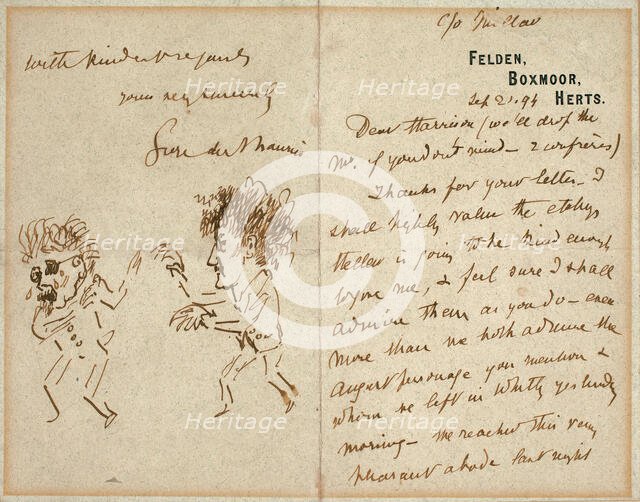 c/o
FELDEN,
BOXMOOR,
HERTS.
Sep 21. 94
Dear Harrison (we'll drop the
Mr. if you don't mind – 2 confrères)
Thanks for your letter – I
shall highly value the etchings
Hellew is going to be kind enough
to give me, & feel sure I shall
admire them as you do – even
more than we both admire the
august personage you mention &
whom we left in Whitby yesterday
morning – We reached this very
pleasant abode last night
With kindest regards
yours very sincerely
du Maurier
Heritage
Heritage
Heritage
Heritage
Heritage
Heritage